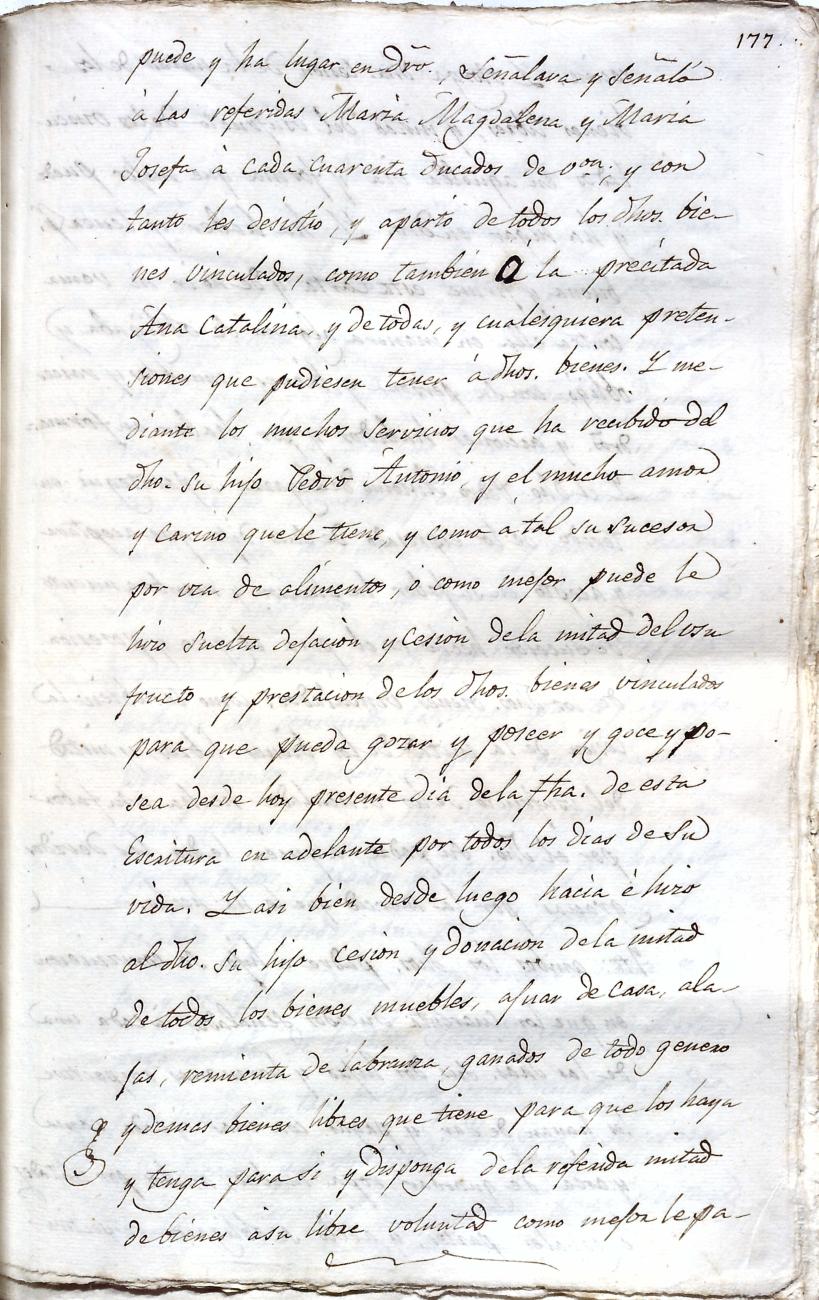 177.
puede y ha lugar en Dro. Señalava y señaló
à las referidas Maria Magdalena y Maria
Josefa à cada cuarenta ducados de von; y con
tanto les desistio, y apartó de todos los dhos. bie-
nes vinculados, como tambien à la precitada
Ana Catalina, y de todas, y cualesquiera preten-
siones que pudiesen tener à dhos. bienes. Y me-
diante los muchos servicios que ha recibido del
dho. su hijo Pedro Antonio, y el mucho amor
y carino que le tiene, y como à tal su sucesor
por via de alimentos, ò como mejor puede le
hizo suelta dejacion y cesion de la mitad del usu
fructo y prestacion de los dhos. bienes vinculados
para que pueda gozar y poseer y goce y po-
sea desde hoy presente dia de la fha. de esta
Escritura en adelante por todos los dias de su
vida. Y asi bien desde luego hacia è hizo
al dho. su hijo cesion y donacion de la mitad
de todos los bienes muebles, ajuar de casa, ala-
jas, remienta de labranza, ganados de todo genero
y demas bienes libres que tiene para que los haya
y tenga para si y disponga de la referida mitad
de bienes à su libre voluntad como mejor le pa-